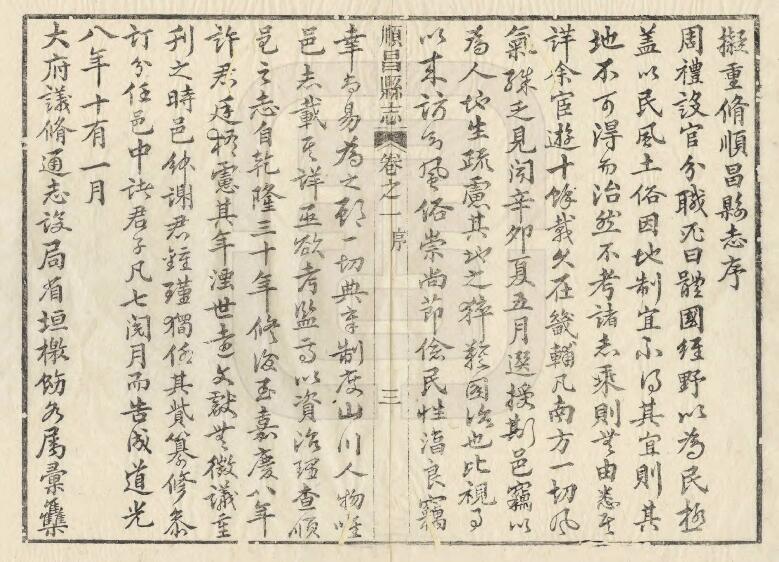 擬重脩順昌縣志序
周禮設官分職不曰體國經野以為民極
蓋以民風土俗因地制宜不得其宜則其
地不可得而治然不考諸志乘則無由悉其
詳余宦遊十餘載久在畿輔凡南方一切風
氣殊乏見聞辛卯夏五月選授斯邑竊以
為人地生疏慮其地之猝難圖治也比視事
以來訪知風俗崇尚節儉民性淳良竊
順昌縣志
卷之一
序
三
幸為易為之顧一切典章制度山川人物唯
邑志載其詳亟欲考鑒焉以資治理查順
邑之志自乾隆三十年修後至嘉慶八年
許君庭梧慮其年湮世遠文獻無徵議重
刊之時邑紳謝君鍾瑾獨任其貲纂修參
訂分任邑中諸君子凡七閱月而告成道光
八年十有一月
大府議脩通志設局省垣檄飭各屬彙集